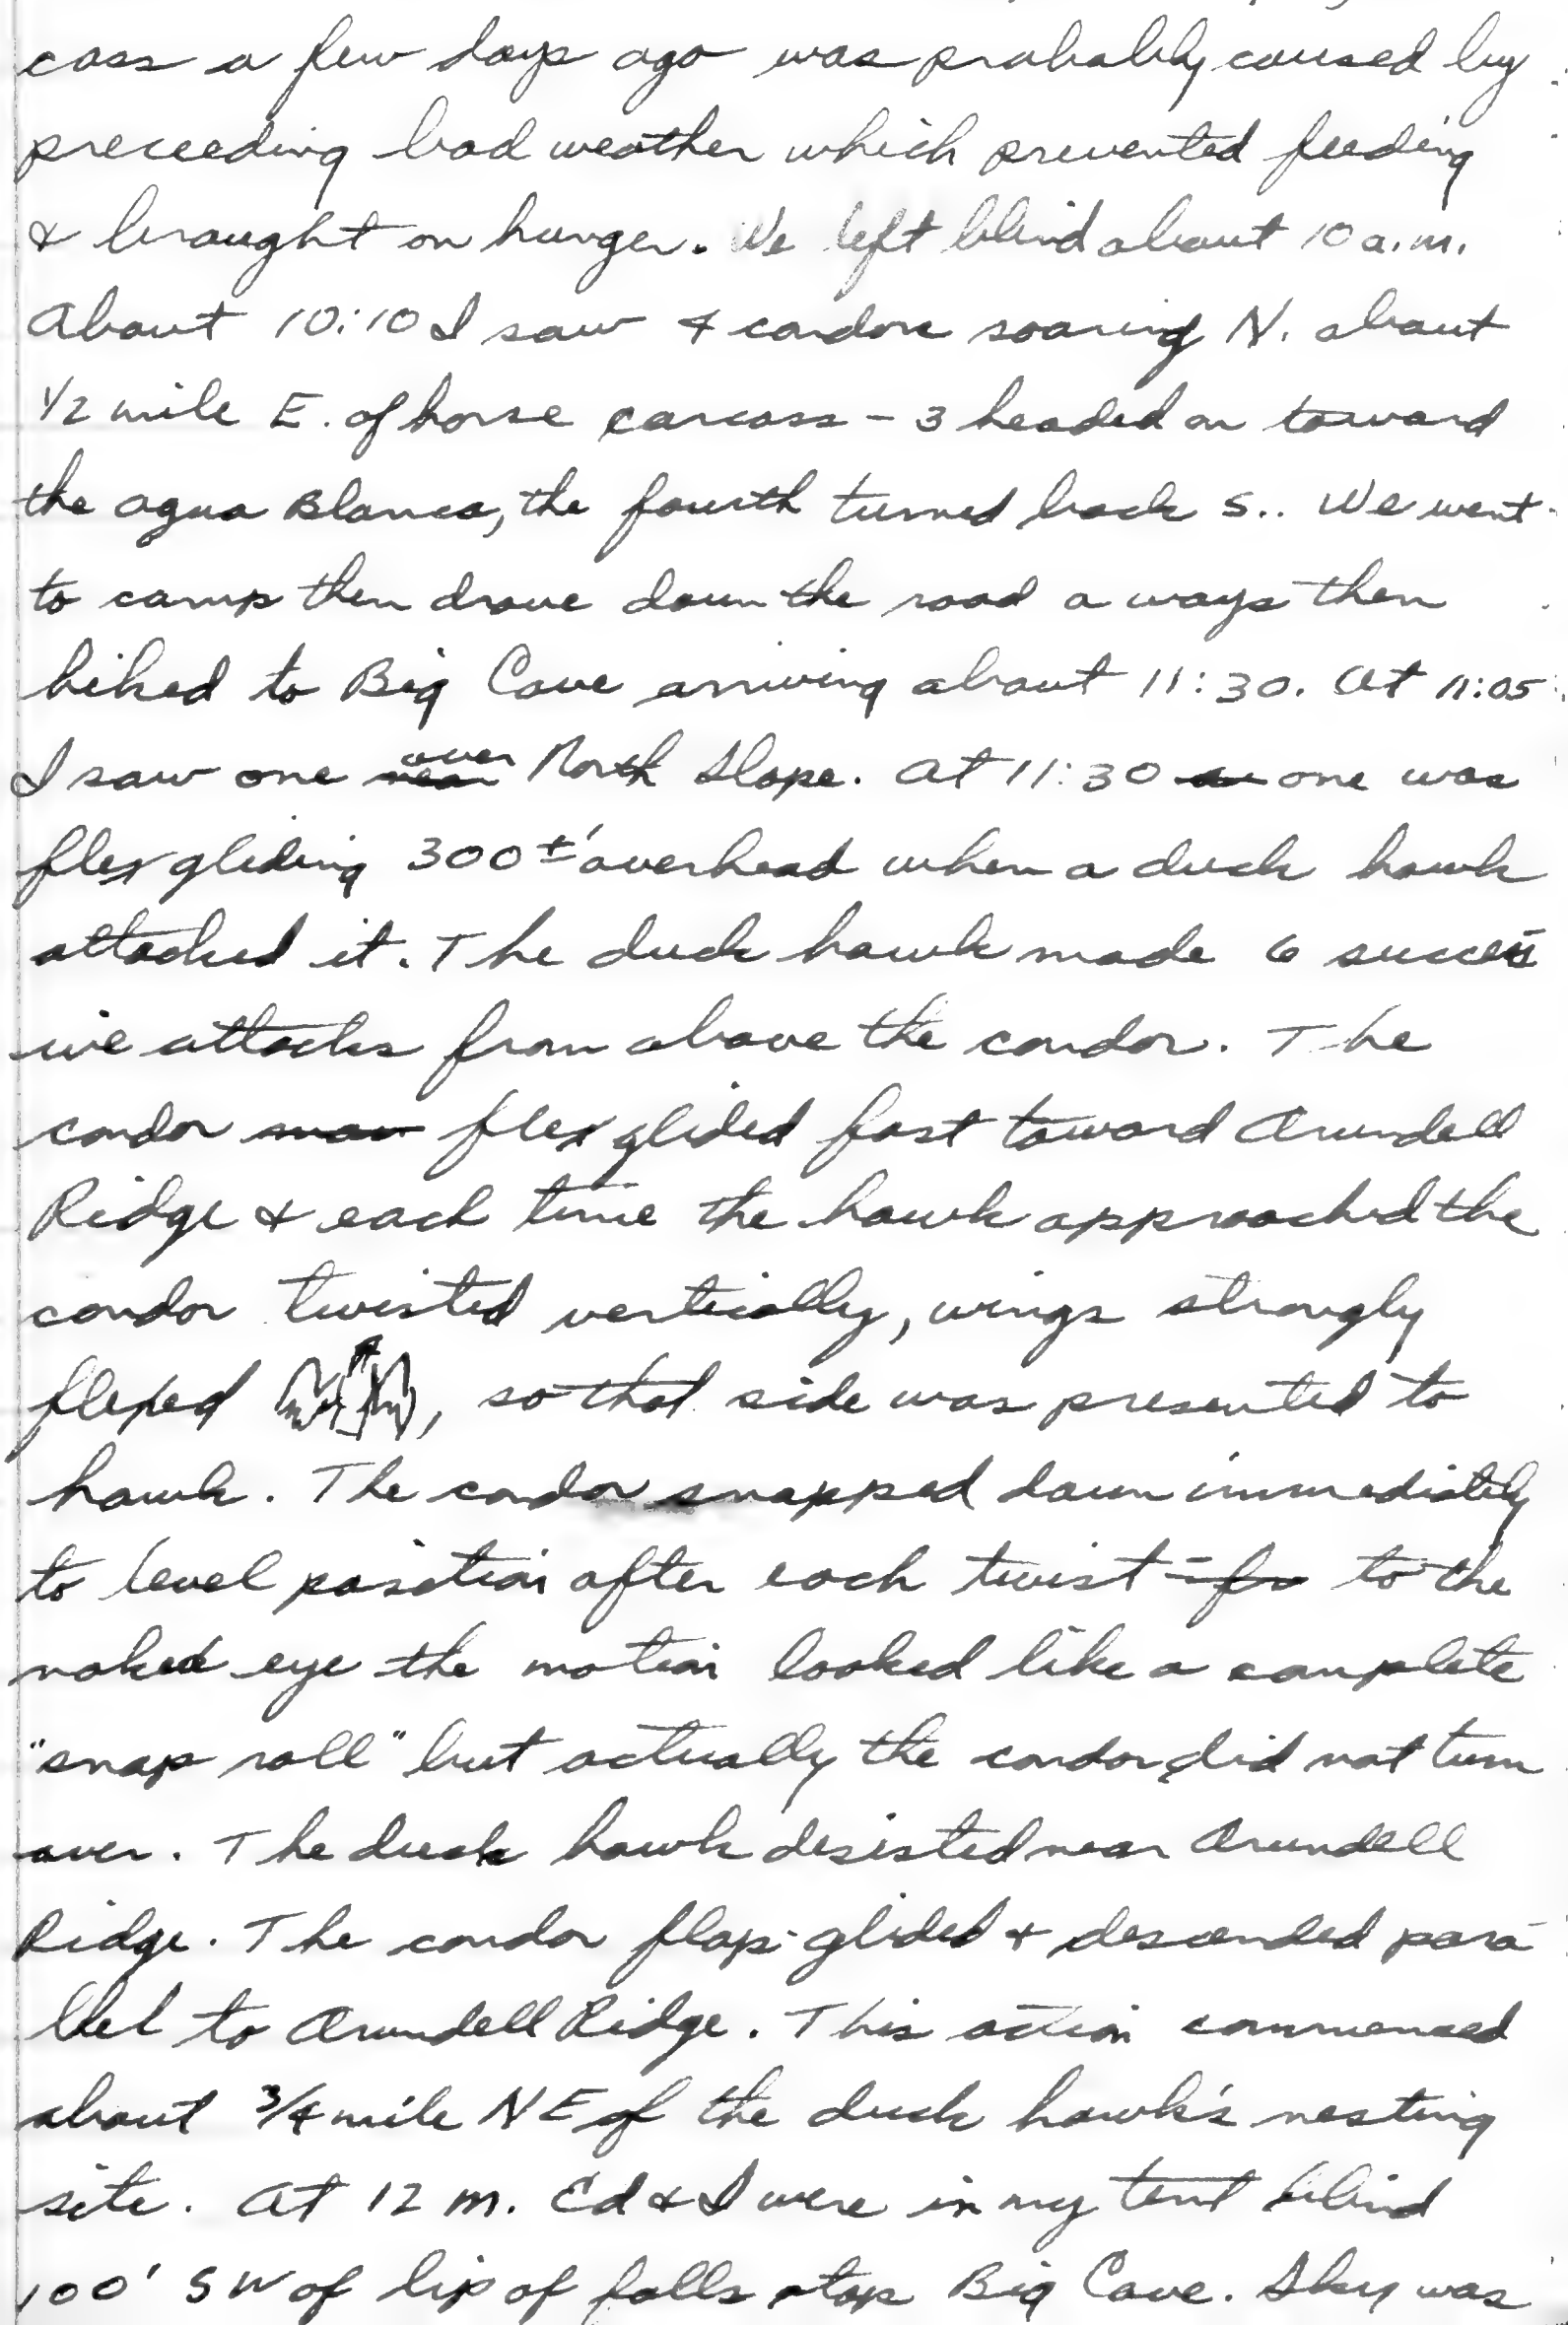 cass a few days ago was probably caused by
preceeding bad weather which prevented feeding
& brought on hunger. We left blind about 10 a.m.
About 10:10 I saw 4 condors soaring N. about
1/2 mile E. of horse carcass - 3 headed on toward
the Agua Blanca, the fourth turned back S.. We went
to camp then drove down the road a ways then
hiked to Big Cave arriving about 11:30. At 11:05
I saw one over North Slope. At 11:30 one was
flex gliding 300±' overhead when a duck hawk
attacked it. The duck hawk made 6 success
ive attacks from above the condor. The
condor flex glided fast toward Arundell
Ridge & each time the hawk approached the
condor twisted vertically, wings strongly
flexed , so that side was presented to
hawk. The condor snapped down immediately
to level position after each twist - to the
naked eye the motion looked like a complete
"snap roll" but actually the condor did not turn
over. The duck hawk desisted near Arundell
Ridge. The condor flap-glided & descended para-
llel to Arundell Ridge. This action commenced
about 3/4 mile NE of the duck hawk's nesting
site. At 12 m. Ed & I were in my tent blind
100' SW of lip of falls atop Big Cave. Sky was